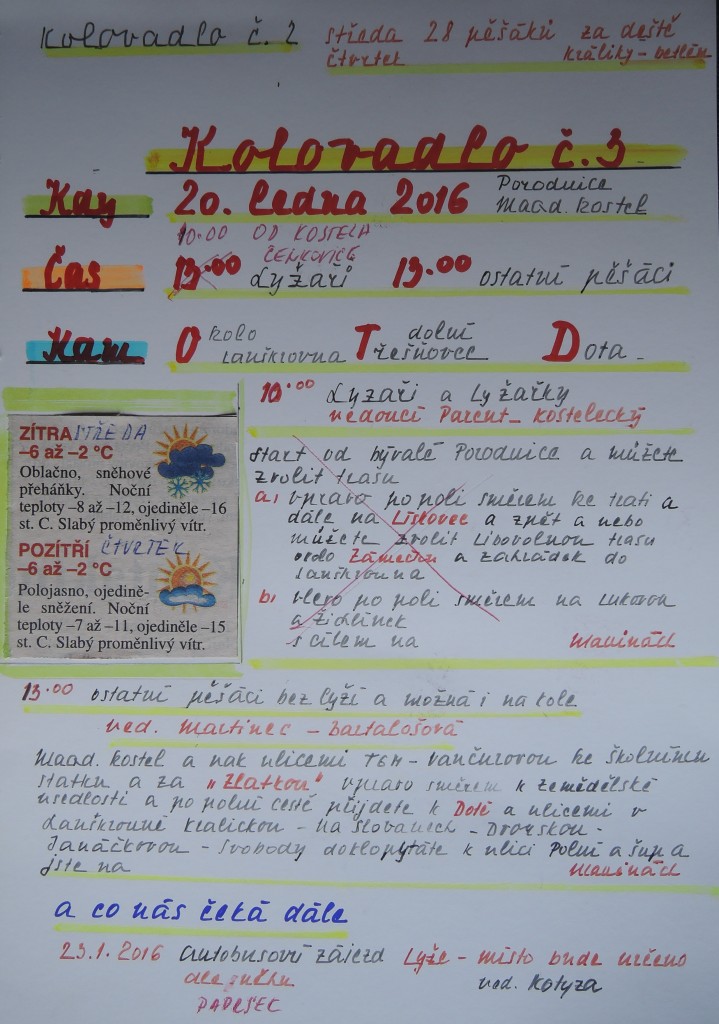 Kolovadlo č. 2 středa 28 pěšáků za deště
čtvrtek králíky - betlém
Kolovadlo č. 3
Kdy 20. ledna 2016 Porodnice
Magd. kostel
10.00 OD KOSTELA
ČENKOVICE
Čas 13.00 Lyžaři 13.00 ostatní pěšáci
Kam Okolo Lanškrouna Třešňovec dolní Dota
10.00 Lyzaři a Lyžařky
vedoucí Parent - Kostelecký
ZÍTRA STŘEDA
–6 až –2 °C
Oblačno, sněhové
přeháňky. Noční
teploty –8 až –12, ojediněle –16
st. C. Slabý proměnlivý vítr.
POZÍTŘÍ ČTVRTEK
–6 až –2 °C
Polojasno, ojedině-
le sněžení. Noční
teploty –7 až –11, ojediněle –15
st. C. Slabý proměnlivý vítr.
start od bývalé Porodnice a můžete
zvolit trasu
a, vpravo po poli směrem ke trati a
dále na Lískovec a zpět a nebo
můžete zvolit libovolnou trasu
okolo Zámečku a zahrádek do
Lanškrouna
b, vlevo po poli směrem na Rukovou
a Židlinek
s cílem na
13.00 ostatní pěšáci bez lyží a možná i na kole
ved. Martinec - Bartalošová
Magd. kostel a pak ulicemi TGM - Vančurovou ke školnímu
statku a za "Zlatkou" vpravo směrem k zemědělské
usedlosti a po polní cestě přijdete k Dotě a ulicemi v
Lanškrouně Kralickou - Na Slovanech - Dvorskou -
Janáčkovou - Svobody doklopýtáte k ulici Polní a šup a
jste na
a co nás čeká dále
23.1.2016 Autobusový zájezd Lyže - místo bude určeno
dle sněhu ved. Kotyza